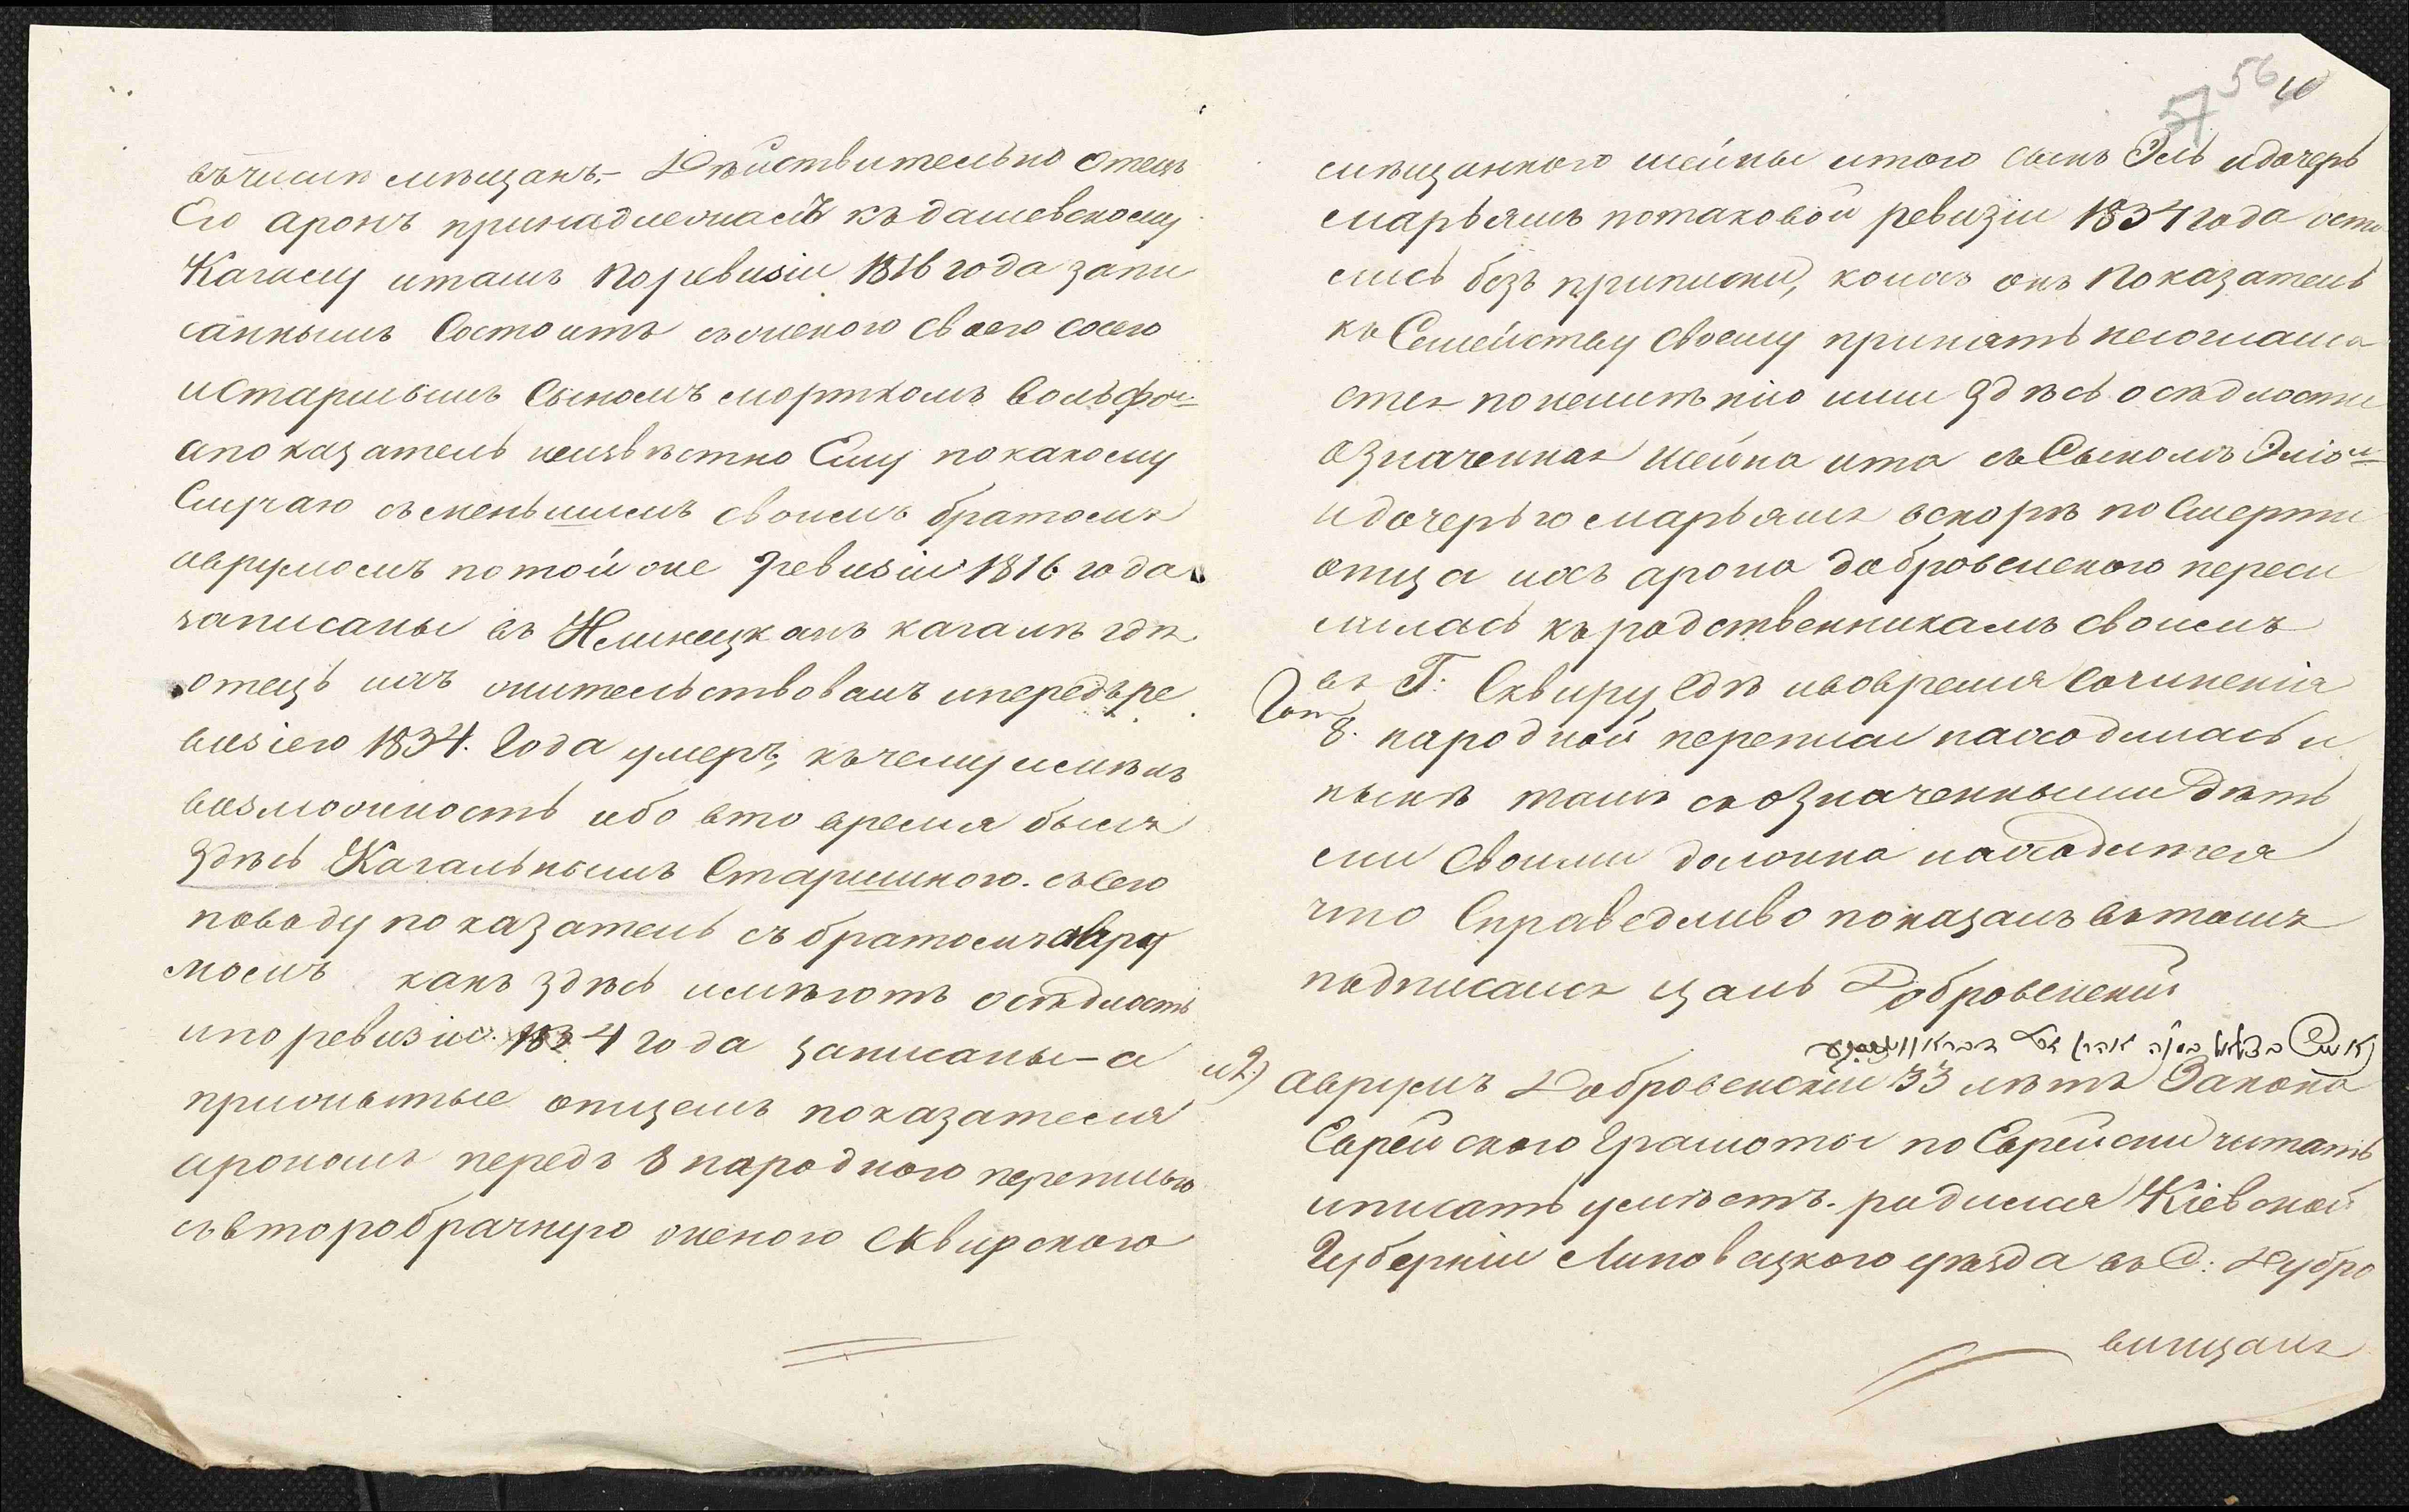 въчисле мещанъ,- Действительно Отецъ
Его аронъ принадлежалъ къ дашевскому
Кагалу итамъ поревизіи 1816 года запи
саннымъ Состоитъ съженою своею
истаршымъ Сыномъ мортхомъ Вольфом
апоказатель неизвѣстно Ему покакому
Случаю съменьшимъ своимъ братомъ
аврумомъ потой же ревизіи 1816 года
записаны въ кагалѣ гдѣ
отецъ ихъ жительствовалъ ипередъ ре
визіею 1834. Года умеръ, къчему имелъ
возможность ибо вто время былъ
здѣсь Кагальнымъ Старшиною. съсего
поводу показатель съ братомъ авру
момъ какъ здѣсь имѣютъ осѣдлость
ипоревизіи 1834 года записаны – а
прижитые отцемъ показателя
арономъ передъ 8 народною переписью
съвторобрачною женою Сквирского
56 10
57
мещанкою шейны итою сынъ Эль идочерь
марьямъ потаковой ревизіи 1834 года оста
лись безъ приписки, коихъ онъ Показатель
къ Семейству своему принять несоглаша
ется понеимѣнію ими здѣсь осѣдлости
означенная шейна ита съ Сыномъ Эліом
идочерью марьямъ вскорѣ по Смерти
отца ихъ арона добровенского пересе
лилась къ родственникамъ своимъ
въ Г: Сквиру, гдѣ ивовремя Сочиненія
8. народной переписи находилась и
нынѣ тамъ съ означенными дѣть
ми своими должна находится
что Справедливо показалъ вътомъ
подписался цаль Добровенский
и 2.) аврумъ Добровенскій 33 лѣтъ Закона
Еврейского Грамоты по Еврейски читать
иписать умѣетъ. родился Кіевской
Губерніи Липовецкого уезда въ С: Дубро
винцахъ